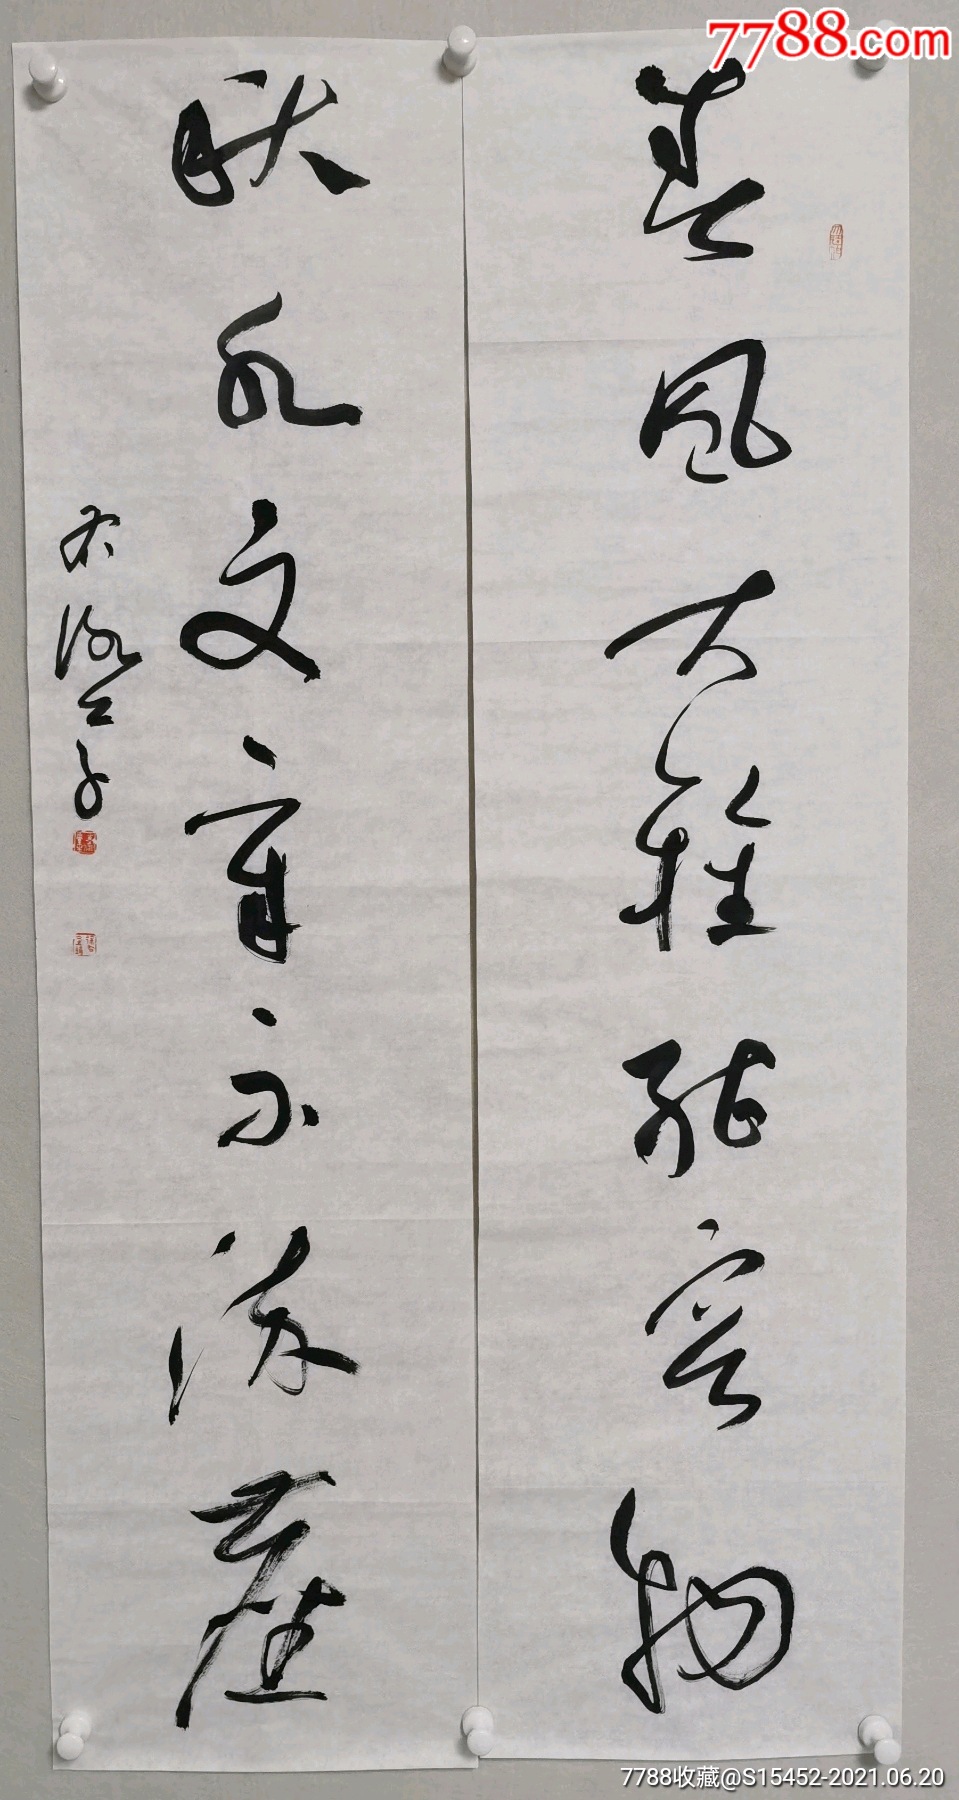 春风大雅能容物
秋水文章不染尘
7788.com
7788收藏@S15452-2021.06.20